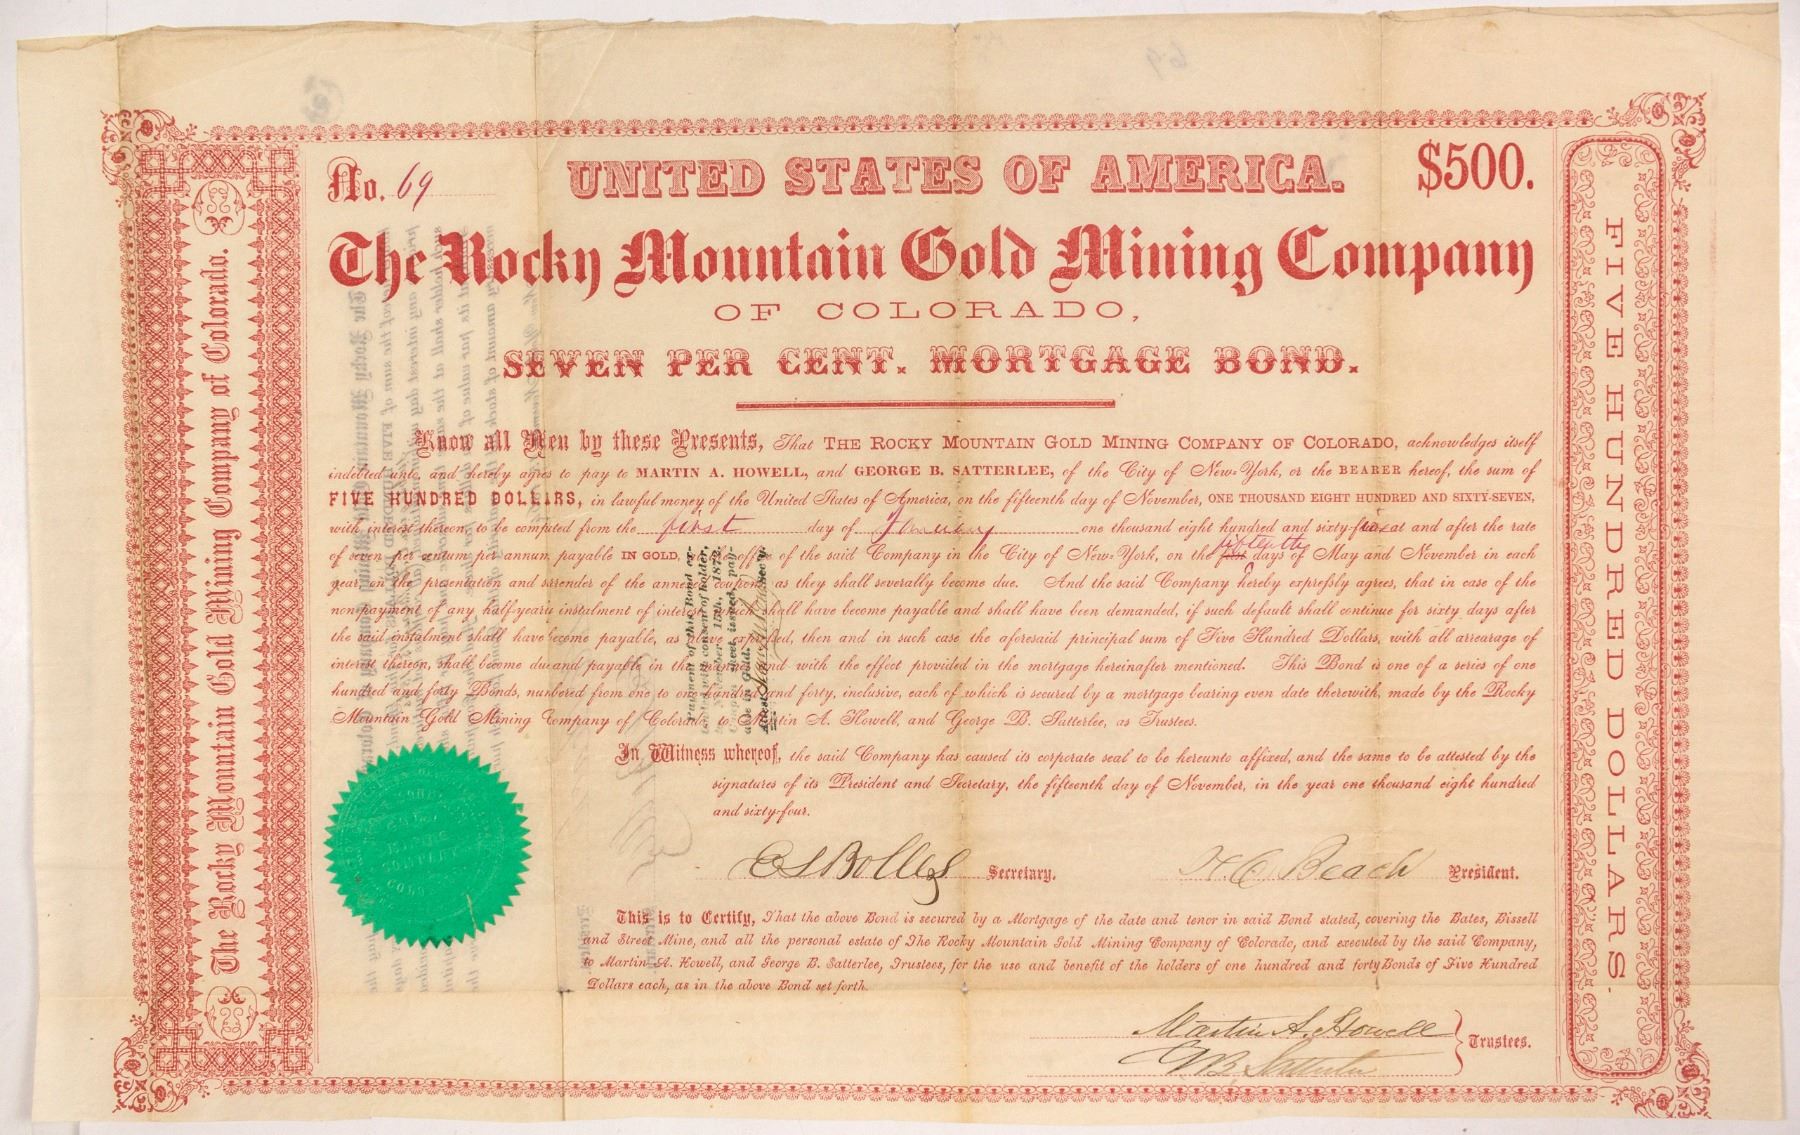 No. 69
UNITED STATES OF AMERICA.
$500.
The Rocky Mountain Gold Mining Company
OF COLORADO,
SEVEN PER CENT. MORTGAGE BOND.
Know all Men by these Presents, That THE ROCKY MOUNTAIN GOLD MINING COMPANY OF COLORADO, acknowledges itself
indebted unto, and hereby agrees to pay to MARTIN A. HOWELL, and GEORGE B. SATTERLEE, of the City of New-York, or the BEARER hereof, the sum of
FIVE HUNDRED DOLLARS, in lawful money of the United States of America, on the fifteenth day of November, ONE THOUSAND EIGHT HUNDRED AND SIXTY-SEVEN,
with interest thereon, to be computed from the first day of January one thousand eight hundred and sixty-five at and after the rate
of seven per centum per annum, payable IN GOLD, office of the said Company in the City of New-York, on the fifteenth days of May and November in each
year, on the presentation and surrender of the annexed coupons, as they shall severally become due. And the said Company hereby expressly agrees, that in case of the
non-payment of any half-yearly instalment of interest, which shall have become payable and shall have been demanded, if such default shall continue for sixty days after
the said instalment shall have become payable, as expressed, then and in such case the aforesaid principal sum of Five Hundred Dollars, with all arrearage of
interest thereon, shall become due and payable in the manner and with the effect provided in the mortgage hereinafter mentioned. This Bond is one of a series of one
hundred and forty Bonds, numbered from one to one hundred and forty, inclusive, each of which is secured by a mortgage bearing even date therewith, made by the Rocky
Mountain Gold Mining Company of Colorado to Martin A. Howell, and George B. Satterlee, as Trustees.
Payment of this Bond ex-
tended with consent of holder,
to November 15th, 1872.
Coupon sheet issued, pay-
able in Gold.
Attest
Sec'y.
In Witness whereof, the said Company has caused its corporate seal to be hereunto affixed, and the same to be attested by the
signatures of its President and Secretary, the fifteenth day of November, in the year one thousand eight hundred
and sixty-four.
E S Bolles Secretary.
H. C. Beach President.
This is to Certify, That the above Bond is secured by a Mortgage of the date and tenor in said Bond stated, covering the Bates, Bissell
and Street Mine, and all the personal estate of The Rocky Mountain Gold Mining Company of Colorado, and executed by the said Company,
to Martin A. Howell, and George B. Satterlee, Trustees, for the use and benefit of the holders of one hundred and forty Bonds of Five Hundred
Dollars each, as in the above Bond set forth.
Martin A. Howell
G B Satterlee
Trustees.
The Rocky Mountain Gold Mining Company of Colorado.
FIVE HUNDRED DOLLARS.